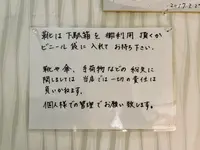 2017.2.2
靴は下駄箱を御利用頂くか
ビニール袋に入れてお持ち下さい。
靴や傘、手荷物などの紛失に
関しましては当店では一切の責任は
負いかねます。
個人様での管理でお願い致します。